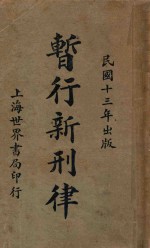 民國十三年出版
暫行新刑律
上海世界書局印行